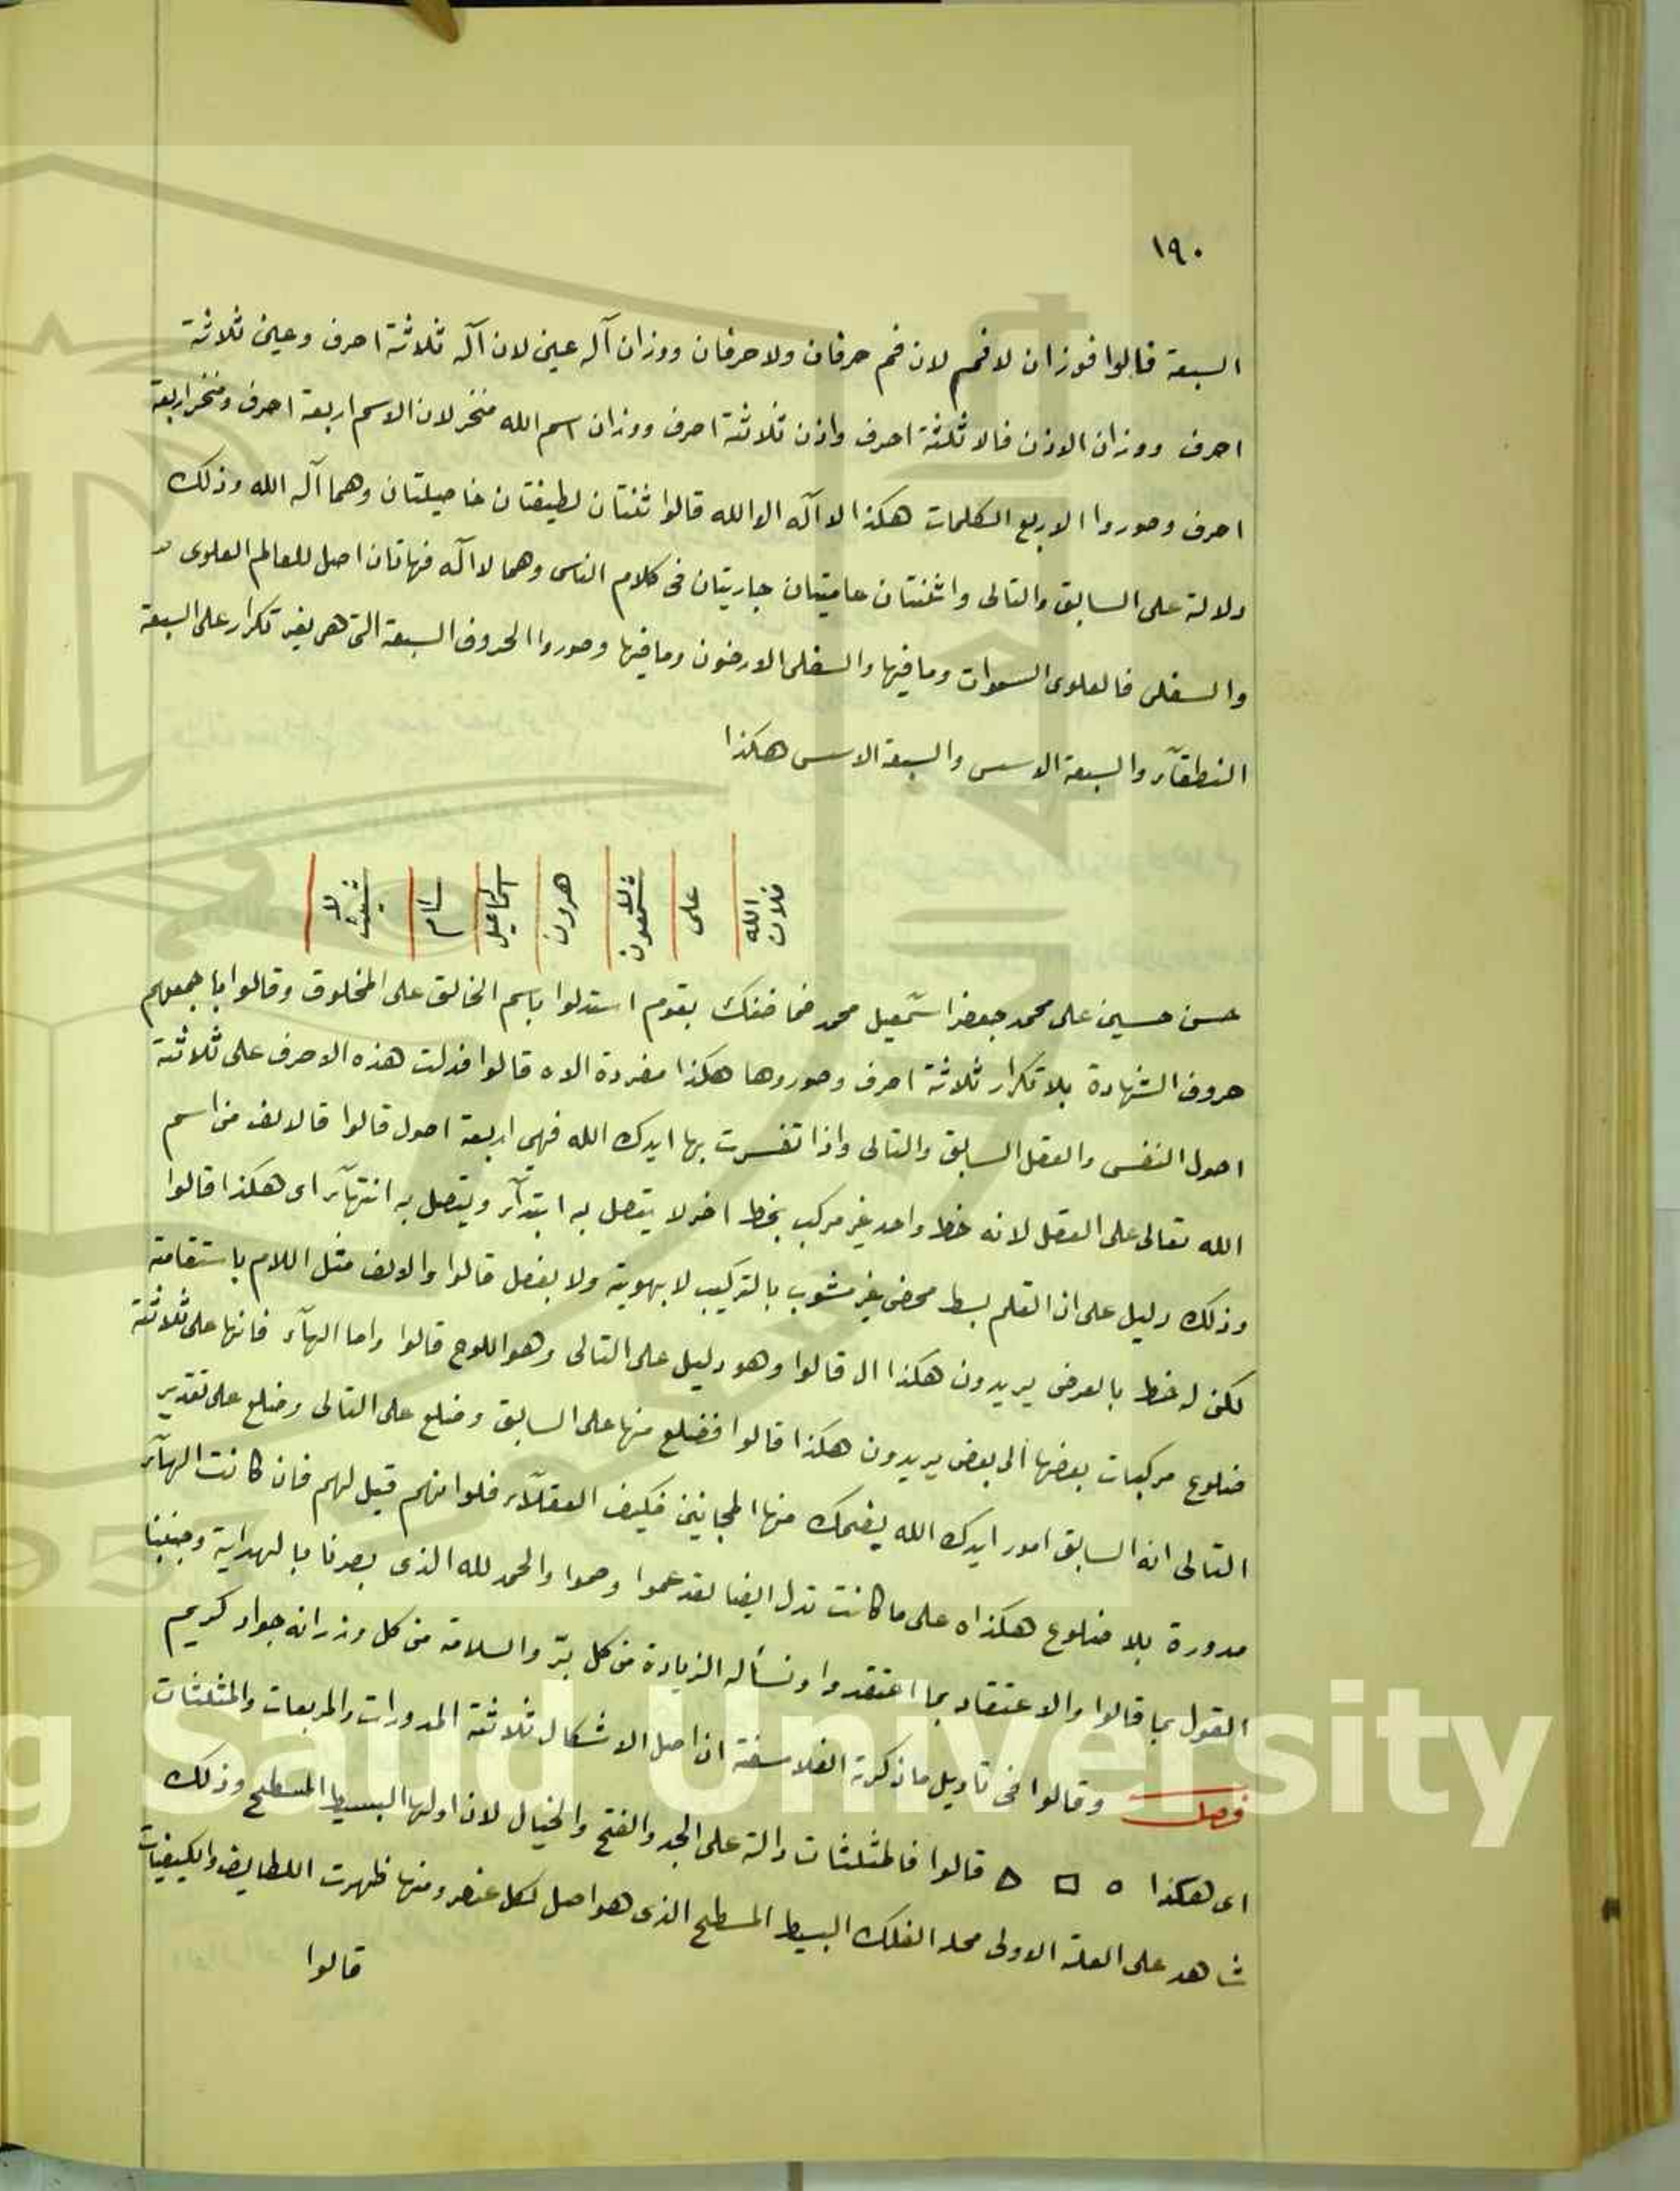 ١٩٠
السبعة قالوا فوزان لا فم لان فم حرفان ولا حرفان ووزان آله عين لان آله ثلاثة احرف وعين ثلاثة
احرف ووزان الاذن فالا ثلثة احرف واذن ثلاثة احرف ووزان اسم الله منخر لان الاسم اربعة احرف ومنخر اربعة
احرف وصوروا الاربع الكلمات هكذا لا آله الا الله قالوا ثنتان لطيفتان خاصيلتان وهما آله الله وذلك
دلالة على السابق والتالى واثنتان عاميتان جاريتان فى كلام الناس وهما لا آله فهاتان اصل للعالم العلوى
والسفلى فالعلوى السموات وما فيها والسفلى الارضون وما فيها وصوروا الحروف السبعة التى هى بغير تكرار على السبعة
النطقآء والسبعة الاسس والسبعة الاسس هكذا
فلان الله على شمعون لا هرون اسماعيل سام شيث لا
حسن حسين على محمد جعفر اسمعيل محمد فما ظنك بقوم استدلوا باسم الخالق على المخلوق وقالوا باجمعهم
حروف الشهادة بلا تكرار ثلاثة احرف وصوروها هكذا مفردة الاه قالوا فدلت هذه الاحرف على ثلاثة
اصول النفس والعقل السابق والتالى واذا تفسرت بها ايدك الله فهى اربعة اصول قالوا قالالف من اسم
الله تعالى على العقل لانه خط واحد غير مركب بخط اخر لا يتصل به ابتدآء ويتصل به انتهآء اى هكذا قالوا
وذلك دليل على ان القلم بسط محض غير مشوب بالتركيب لا بهوية ولا بفصل قالوا والالف مثل اللام باستقامة
لكن له خط بالعرض يريدون هكذا ال قالوا وهو دليل على التالى وهو اللوح قالوا واما الهآء فانها على ثلاثة
ضلوع مركبات بعضها الى بعض يريدون هكذا قالوا فضلع منها على السابق وضلع على التالى وضلع على تقدير
التالى انه السابق امور ايدك الله يضحك منها المجانين فكيف العقلآء فلوا انهم قيل لهم فان كانت الهآء
مدورة بلا ضلوع هكذا ه على ما كانت تدل ايضا لقد عموا وصموا والحمد لله الذى بصرنا بالهداية وجنبنا
القول بما قالوا والاعتقاد بما اعتقدوا ونسأله الزيادة من كل بر والسلامة من كل وزر انه جواد كريم
فصل وقالوا فى تاويل ما ذكرته الفلاسفة ان اصل الاشكال ثلاثة المدورات والمربعات والمثلثات
اى هكذا ○ □ △ قالوا فالمثلثات دالة على الجد والفتح والخيال لان اولها البسيط المسطح وذلك
شاهد على العلة الاولى محله الفلك البسيط المسطح الذى هو اصل لكل عنصر ومنها ظهرت اللطايف والكيفيات
قالوا
g Saud University